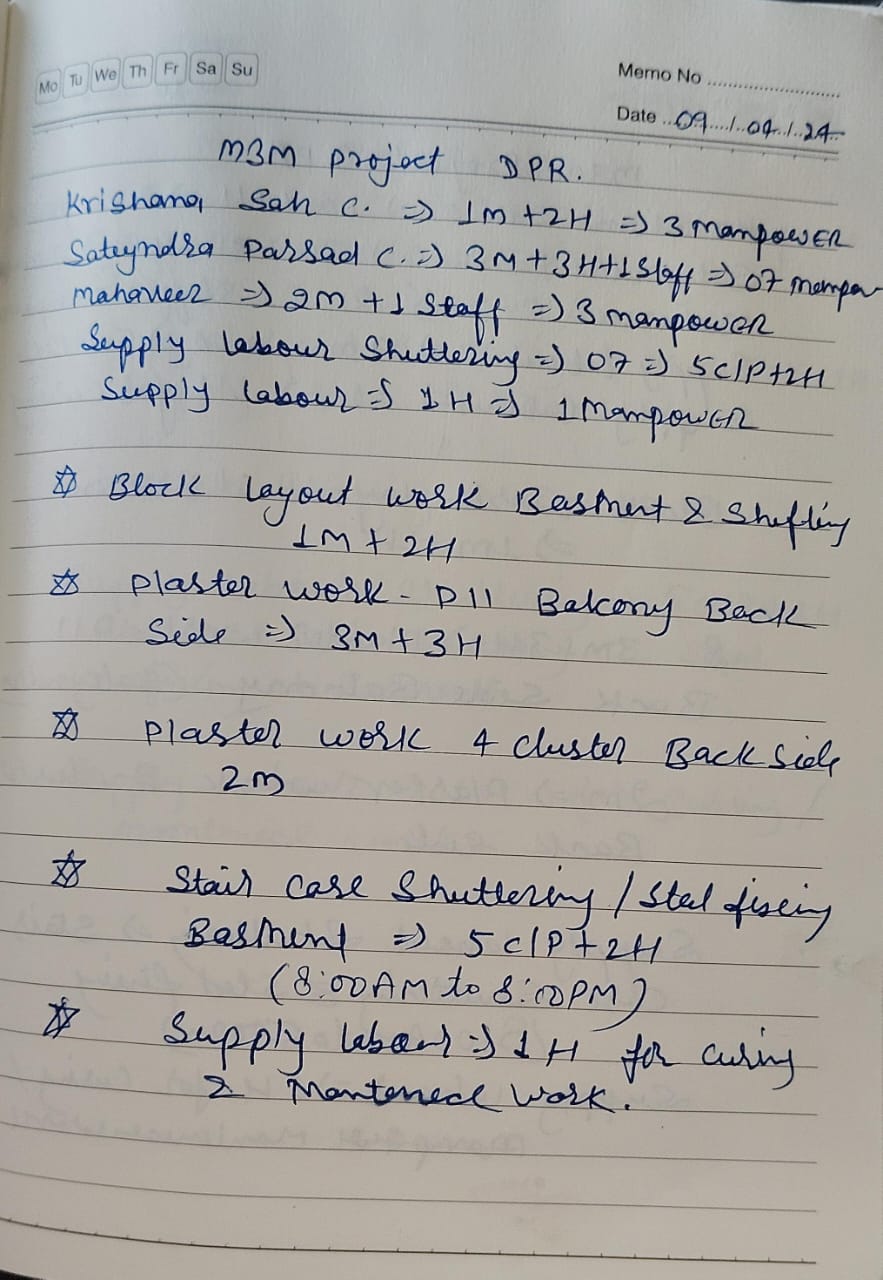 Mo Tu We Th Fr Sa Su
Memo No
Date 09/04/24
M3M project DPR.
Krishana Sah C. => 1M+2H => 3 manpowER
Sateyndra Parsad C. => 3M+3H+1 Staff => 07 manpow
Mahaveer => 2M +1 Staff => 3 manpowER
Supply labour Shuttering => 07 => 5C/P+2H
Supply labour => 1H => 1 ManpowER
☆ Block layout work Basment & Shefting
1M + 2H
☆ Plaster work - P11 Balcony Back
Side => 3M + 3H
☆ Plaster work 4 cluster Back Side
2M
☆ Stair Case Shuttering / Steel fixing
Basment => 5C/P+2H
(8:00AM to 8:00PM)
☆ Supply labour => 1H for curing
& work.